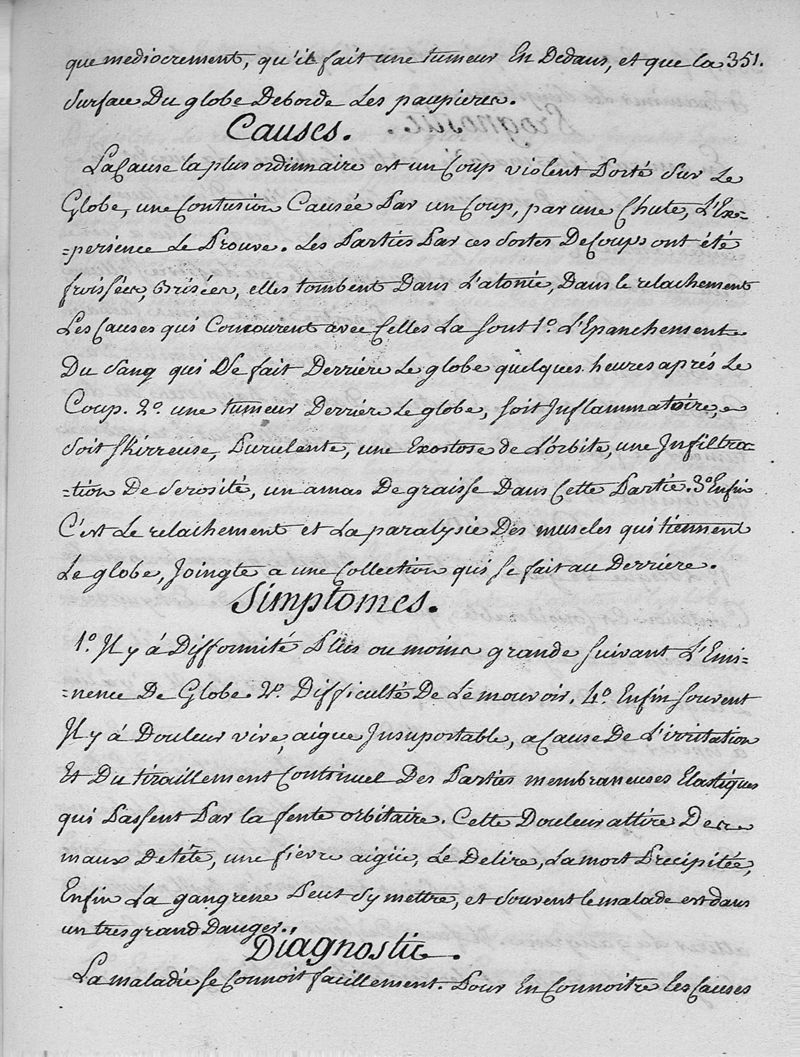 que mediocrement, qu'il fait une tumeur En Dedans, et que la 351.
Surface Du globe Deborde Les paupieres.
Causes.
La Cause la plus ordinnaire est un Coup violent Porté Sur Le
Globe, une Contusion Causée Par un Coup, par une Chute, L'Ex-
=perience Le Prouve. Les Parties Par ces Sortes De Coups ont été
froissées, Brisees, elles tombent Dans L'atonie, Dans le relachement
Les Causes qui Concourent avec Celles La Sont 1.º L'Epanchement
Du Sang qui Se fait Derriere Le globe quelques heures aprés Le
Coup. 2.º une tumeur Derriere Le globe, Soit Inflammatoire,
Soit Skirreuse, Purulente, une Exostose de L'orbite, une Infiltra-
=tion De Serosité, un amas De graisse Dans Cette Partie. 3.º Enfin
C'est Le relachement et La paralysie Des muscles qui tiennent
Le globe, Joingte a une Collection qui Se fait au Derriere.
Simptomes.
1.º Il y á Difformité Plus ou moins grande Suivant L'Emi-
=nence De Globe. 2.º Difficulté De Le mouvoir. 4.º Enfin Souvent
Il y á Douleur vive, aigue Insuportable, a Cause De L'irritation
Et Du tiraillement Continuel Des Parties membraneuses Elastiques
qui Passent Par la fente orbitaire. Cette Douleur attire Des
maux De téte, une fievre aigüe, Le Delire, La mort Precipitée,
Enfin La gangrene Peut S'y mettre, et Souvent le malade est dans
un tres grand Danger.
Diagnostic.
La maladie Se Connoit facillement. Pour En Connoitre les Causes